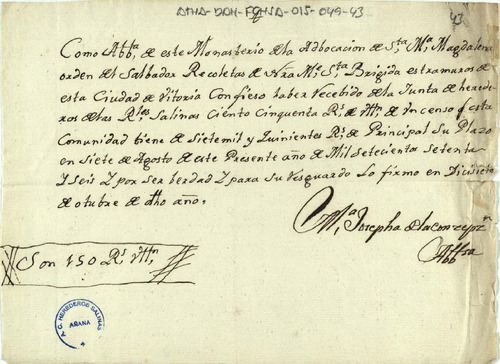 ATHA-DAH-FGHSA-015-049-43
43
Como Abb.ª de este Monasterio de la Advocacion de S.ta M.ª Magdalena
orden del Salbador Recoletas de Nra M.e S.ta Brigida estramuros de
esta Ciudad de Vitoria Confieso haber Recebido de la Junta de herede
ros de las R.les Salinas Ciento Cinquenta R.s de V.on de un censo q esta
Comunidad tiene de Siete mil y Quinientos R.s de Principal Su Plazo
en Siete de Agosto de este Presente año de Mil setecientos setenta
Y Seis Y por ser berdad Y para su Resguardo Lo firmo en Dicisiete
de otubre de dho año.
M.ª Josepha de la conzepz.n
Abb.sa
Son 150 R.s V.on
A.G. HEREDEROS SALINAS
AÑANA